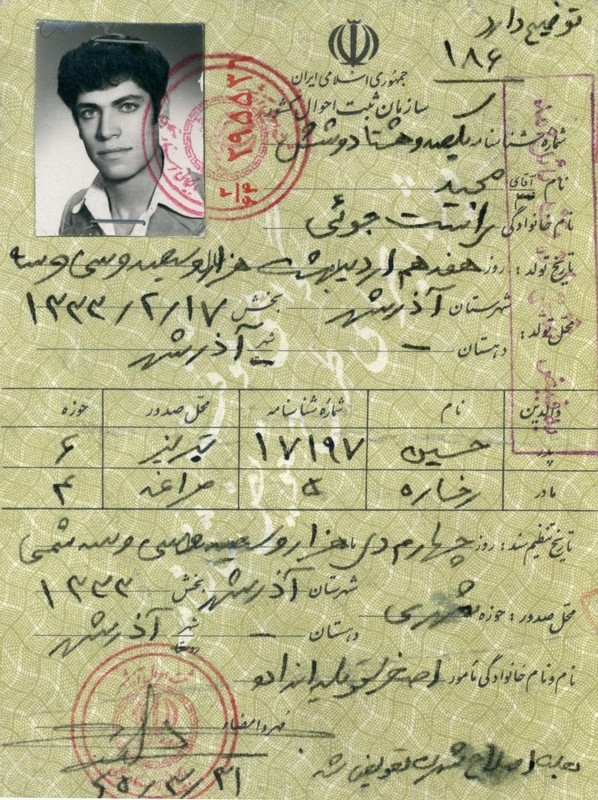 توضیح دارد
۱۸۶
جمهوری اسلامی ایران
سازمان ثبت احوال کشور
شماره شناسنامه یکصد و هشتاد و شش
نام آقای مجید
نام خانوادگی
تاریخ تولد : روز هفدهم اردیبهشت هزار و سیصد و سی و سه
۱۳۳۳/۲/۱۷
محل تولد : شهرستان آذرشهر بخش
دهستان - شهر آذرشهر
والدین نام شماره شناسنامه محل صدور حوزه
پدر حسین ۱۷۱۹۷ تبریز ۶
مادر رخساره ۵ مراغه ۴
تاریخ تنظیم سند : روز چهارم دی ماه هزار و سیصد و سی و سه شمسی
۱۳۳۳
محل صدور : حوزه شهری شهرستان آذرشهر بخش
دهستان - شهر آذرشهر
نام و نام خانوادگی مأمور اصغر
مهر و امضاء
بعلت اصلاح شهرت تعویض شد